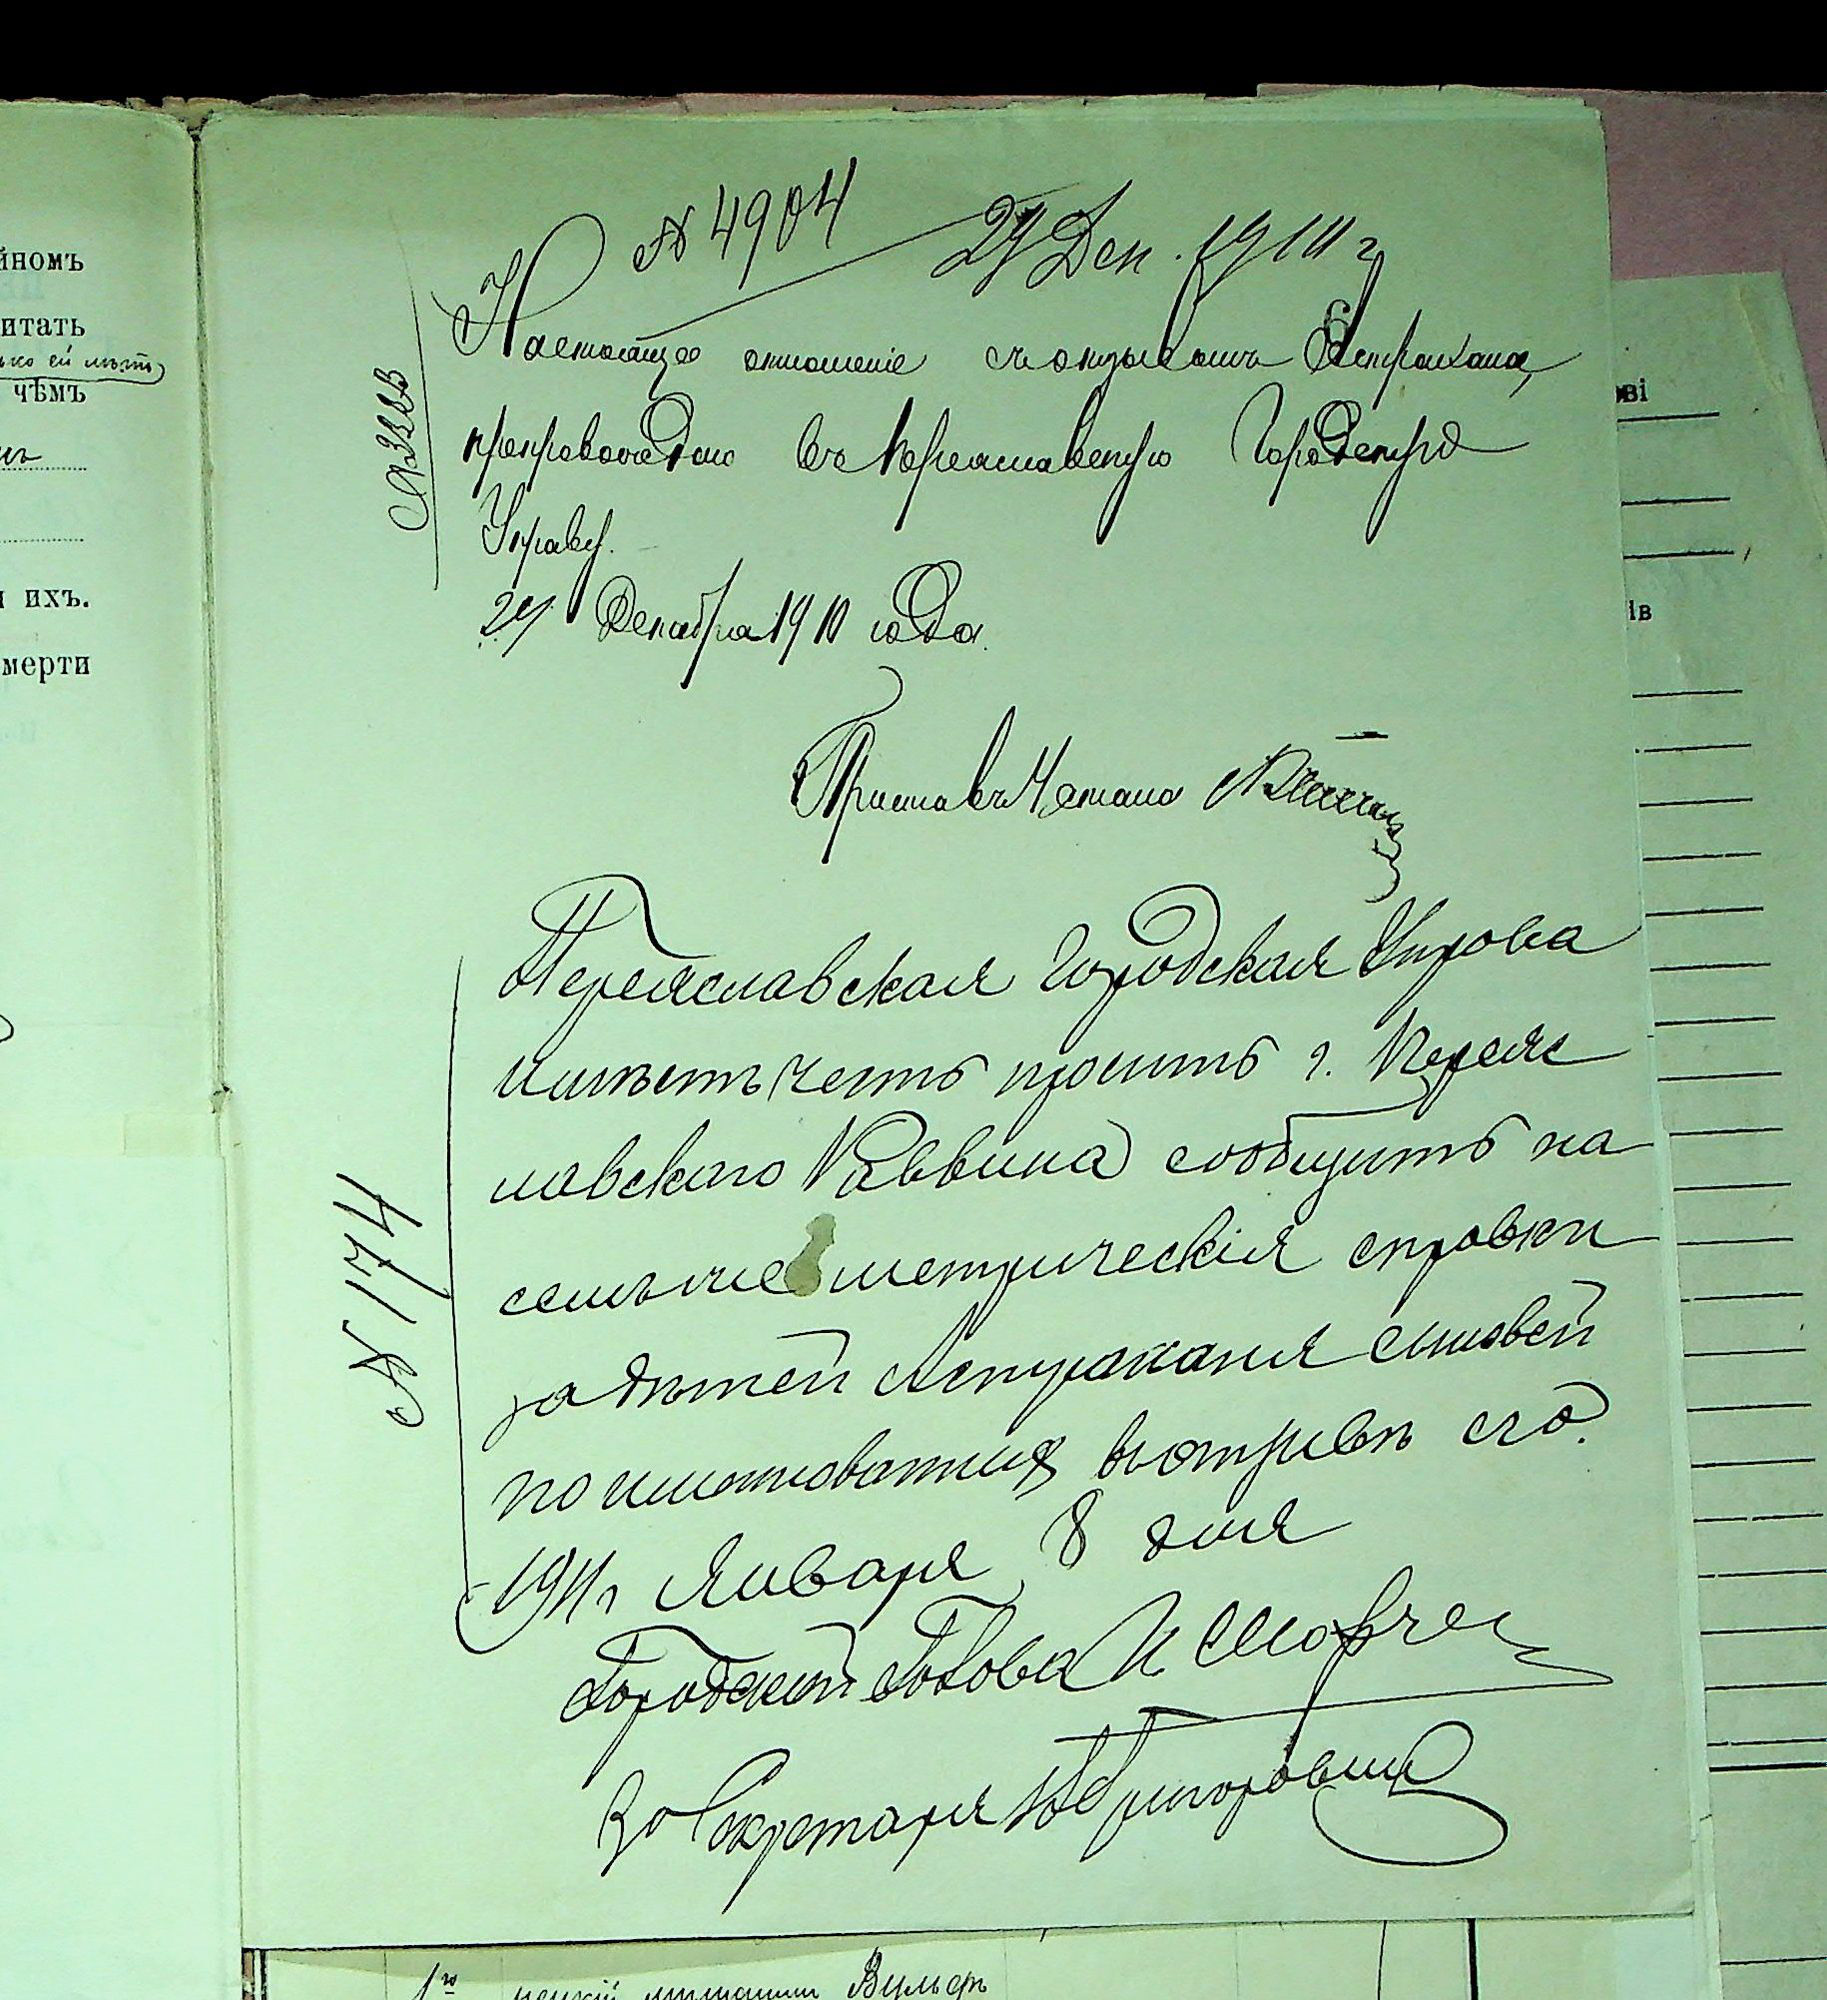 йномъ
итать
ько ей лѣтъ
чѣмъ
и ихъ.
мерти
№ 4904
29 Дек. 1910 г
Настоящее отношеніе съ отзывомъ Астрахана,
препровождаю въ Переяславскую Городскую
Управу.
29 Декабря 1910 года.
Приставъ
Переяславская Городская Управа
имѣетъ честь просить г. Переяс
лавскаго Раввина сообщить на
семъ же метрическія справки
за дѣтей Астраханя сыновей
поименованныхъ въ отзывѣ его.
1911 г Января 8 дня
Городской Голова И
За Секретаря Григоровичъ
№ 174
ові
ів
1го
Вульфъ